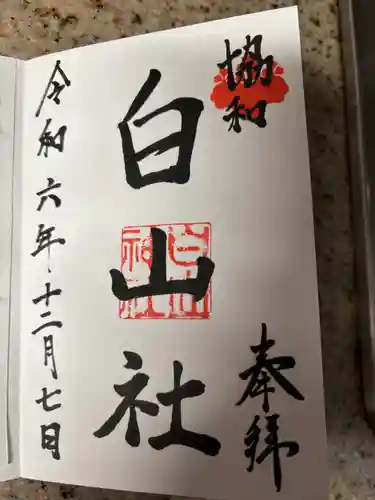 協和
奉拝
白山社
白山
神社
令和六年十二月七日